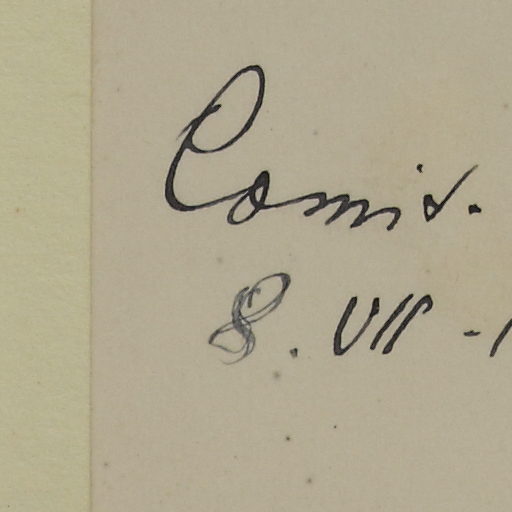 Comit.
8. VII - 1